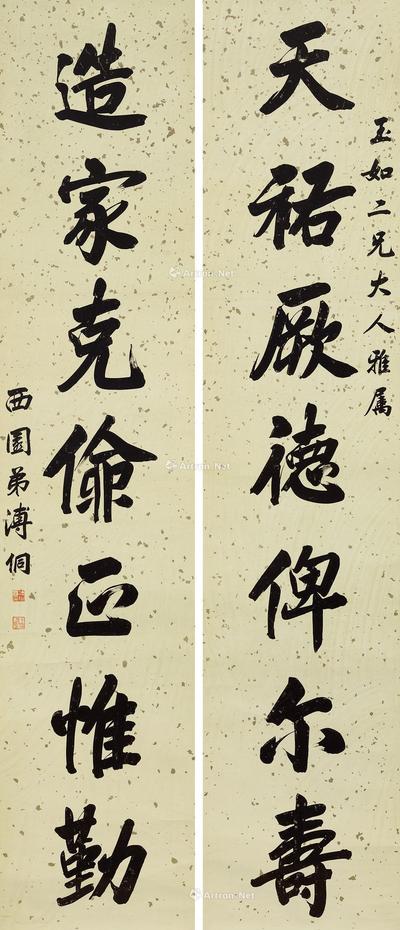 玉如二兄大人雅属
天祐厥德俾尔壽
造家克儉正惟勤
西園弟溥侗
Artron.Net
Artron.Net
Artron.Net